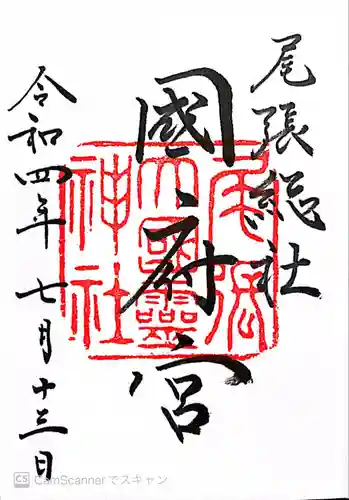 尾張総社
國府宮
令和四年七月十三日
尾張
大國霊
神社
CS CamScannerでスキャン